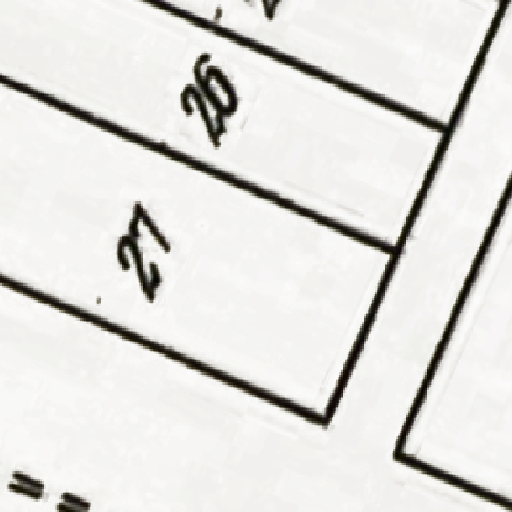 26
27
= =